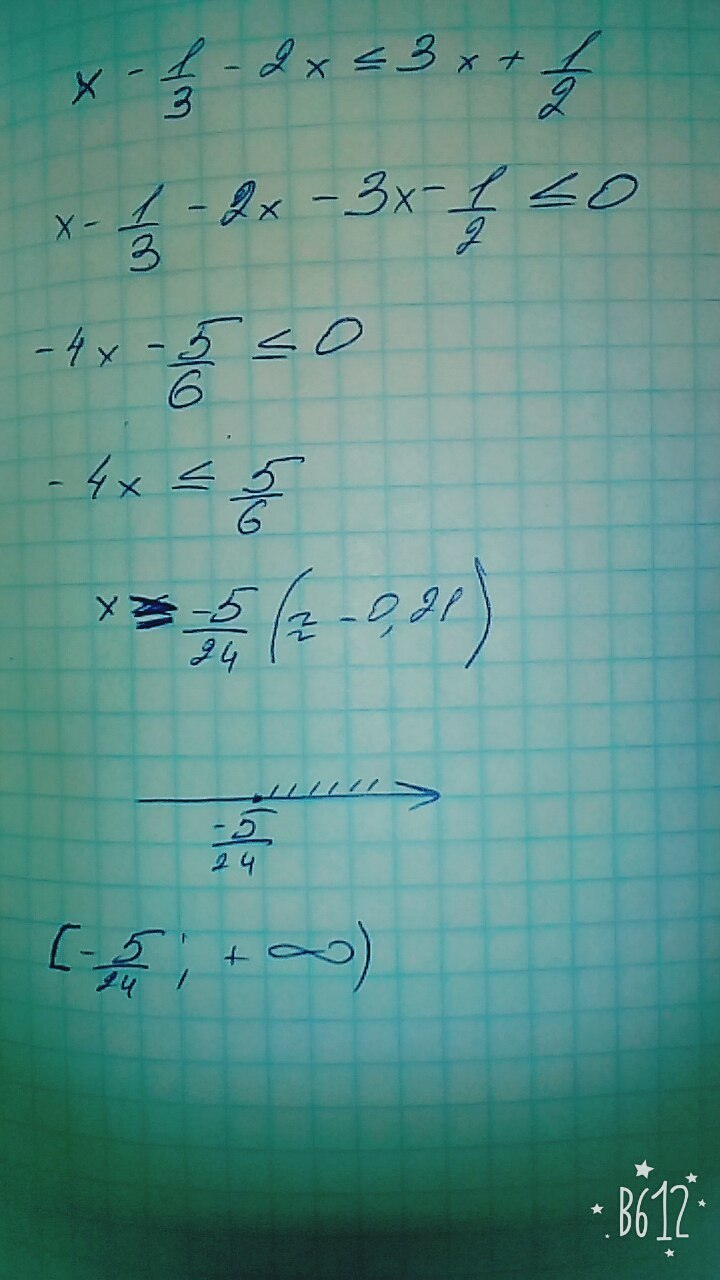 x - 1/3 - 2x ≤ 3x + 1/2
x - 1/3 - 2x - 3x - 1/2 ≤ 0
-4x - 5/6 ≤ 0
-4x ≤ 5/6
x ≥ -5/24 (≈ -0,21)
-5/24
[-5/24; +∞)
B612